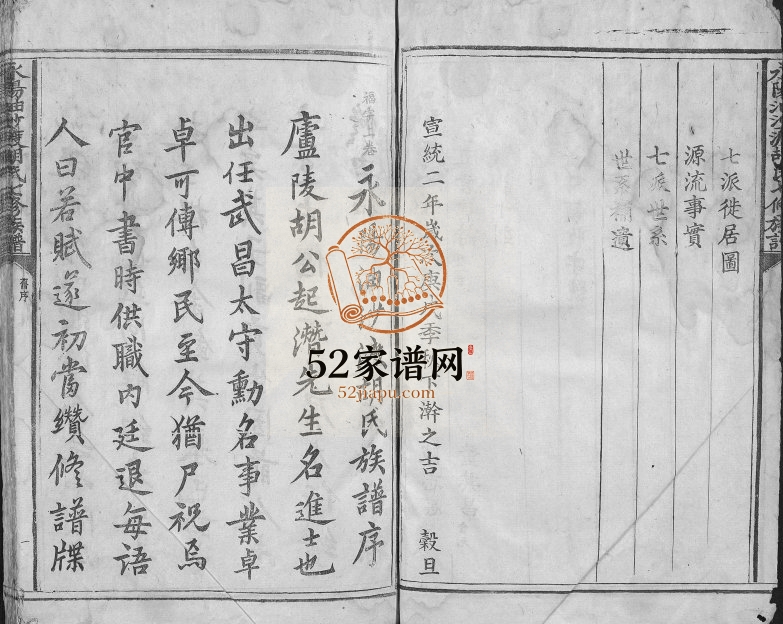 七派徙居圖
源流事實
七派世系
世系補遺
宣統二年歲 庚戌季 下澣之吉 穀旦
永陽油 胡氏族譜序
廬陵胡公起潛先生名進士也
出任武昌太守勳名事業卓
卓可傳鄉民至今猶尸祝焉
官中書時供職內廷退每語
人曰若賦遂初當纘修譜牒
舊序
52家谱网
52jiapu.com